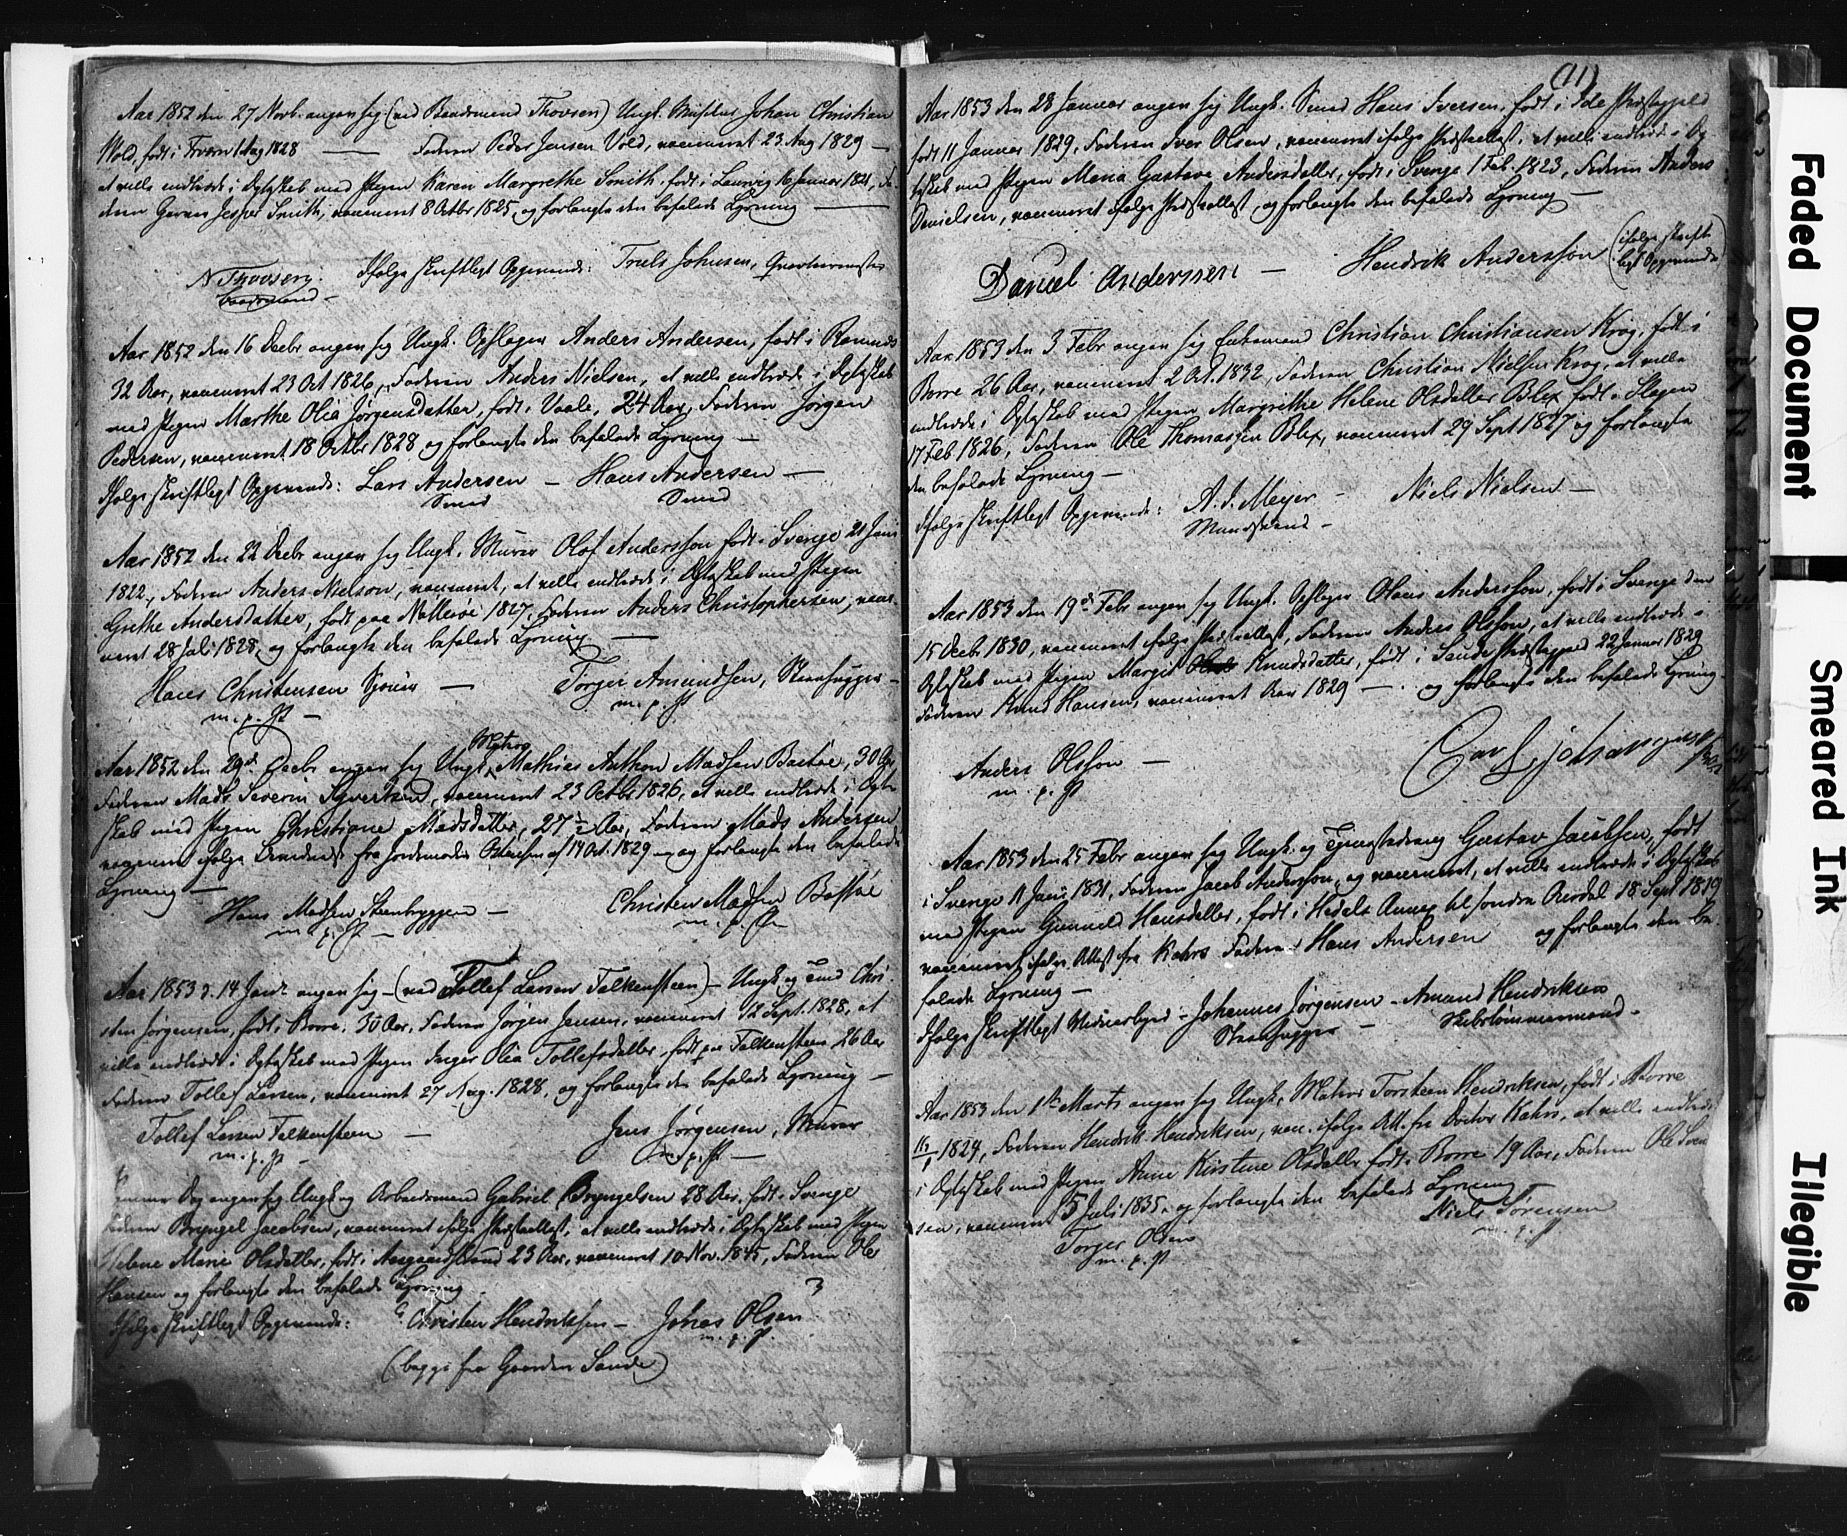 Aar 1852 den 27 Novb. angav sig (ved Baadsmand Thovsen) Ungk. Musikus Johan Christian
Wold, født i Fræn 1 Aug 1828 — Faderen Peder Jensen Vold, vaccineret 23 Aug 1829 —
at ville indtræde i Egteskab med Pigen Karen Margrethe Smith, født i Laurvig 16 Januar 1821, Fa-
deren Garver Jesper Smith, vaccineret 8 Octbr 1825, og forlangte den befalede Lysning —
N Thovsen, Ifølge skriftligt Opgivende: Truls Johnsen, Qvarteermester
baadsmand —
Aar 1852 den 16 Decbr angav sig Ungk. Opsÿnsm Anders Andersen, født i Ramnæs
32 Aar, vaccineret 23 Oct 1826, Faderen Anders Nielsen, at ville indtræde i Egteskab
med Pigen Marthe Olia Jørgensdatter, født i Vaale, 24 Aar, Faderen Jørgen
Pedersen, vaccineret 18 Octbr 1828 og forlangte den befalede Lysning —
Ifølge skriftligt Opgivende: Lars Andersen — Hans Andersen —
Smed Smed
Aar 1852 den 22 Decbr angav sig Ungk. Murer Olof Andersson født i Sverige 21 Juni
1822, Faderen Anders Nielson, vaccineret, at ville indtræde i Egteskab med Pigen
Grethe Andersdatter, født paa Nøtterøe 1827, Faderen Anders Christophersen, vacci-
neret 28 Juli 1828, og forlangte den befalede Lysning —
Hans Christensen — Torger Amundsen, Steenhugger —
m. p. P — m. p. P
Matros
Aar 1852 den 29de Decbr angav sig Ungk. Mathias Anthon Madsen Bastøe, 30 Aar
Faderen Mads Severin Syvertsen, vaccineret 23 Octbr 1826, at ville indtræde i Egte-
skab med Pigen Christiane Madsdatter, 27 ½ Aar, Faderen Mads Andersen
vaccineret ifølge Beviis fra Jordemoder af 14 Oct. 1829 — og forlangte den befalede
Lysning —
Hans Madsen Steenbryggen — Christen Madsen Bastøe
m. p. P — m. p. P
Aar 1853 d. 14 Janr angav sig — (ved Tollef Larsen Falkensteen) — Ungk. og Smed Chri-
sten Jørgensen, født i Borre, 30 Aar, Faderen Jørgen Jensen, vaccineret 12 Sept. 1828, at
ville indtræde i Egteskab med Pigen Inger Olia Tollefsdatter, født paa Falkensteen 26 Aar
Faderen Tollef Larsen, vaccineret 27 Aug. 1828, og forlangte den befalede Lysning —
Tollef Larsen Falkensteen — Jens Jørgensen, Murer
m. p. P — m. p. P —
Samme Dag angav sig Ungk. og Arbeidsmand Gabriel Bryngelsen 28 Aar, født i Sverige
Faderen Bryngel Jacobsen, vaccineret ifølge Præsteattest, at ville indtræde i Egteskab med Pigen
Helene Marie Olsdatter, født i Aasgaardstrand 23 Aar, vaccineret 10 Nov. 1845, Faderen Ole
Hansen og forlangte den befalede Lysning
Ifølge skriftligt Opgivende: Christen Hendriksen — Johas Olsen
m. p. P.
(begge fra Gaarden Sande)
(11)
Aar 1853 den 28 Januar angav sig Ungk. Smed Hans Iversen, født i Ide Præstegjeld
født 11 Januar 1829, Faderen Iver Olsen, vaccineret ifølge Præsteattest, at ville indtræde i Eg-
teskab med Pigen Maria Gustava Andersdatter, født i Sverige 1 Feb. 1823, Faderen Anders
Danielsen, vaccineret ifølge Præsteattest, og forlangte den befalede Lysning —
Daniel Anderssen — Hendrik Andersson (ifølge skrift-
ligt Opgivende)
Aar 1853 den 3 Febr angav sig Enkemand Christian Christiansen Krog, født i
Borre 26 Aar, vaccineret 2 Oct. 1832, Faderen Christian Nielsen Krog, at ville
indtræde i Egteskab med Pigen Margrethe Helene Olsdatter Blix, født i Slagen
17 Feb 1826, Faderen Ole Thomassen Blix, vaccineret 29 Sept 1827 og forlangte
den befalede Lysning —
Ifølge skriftligt Opgivende: A. J. Meyer — Niels Nielsen —
Aar 1853 den 19de Febr angav sig Ungk. Olaus Andersson, født i Sverige den
15 Decbr 1830, vaccineret ifølge Præsteattest, Faderen Anders Olsson, at ville indtræde i
Egteskab med Pigen Margit Knudsdatter, født i Saude Præstegjeld 22 Januar 1829
Faderen Knud Hansen, vaccineret Aar 1829 — og forlangte den befalede Lysning
Anders Olsson — Carl Johan
m. p. P
Aar 1853 den 25 Febr angav sig Ungk. og Gustav Jacobsen, født
i Sverige 11 Juni 1831, Faderen Jacob Andersson, og vaccineret, at ville indtræde i Egteskab
med Pigen Gunnild Hansdatter, født i Hedals Annex til søndre Aurdal 18 Sept 1819
vaccineret ifølge Attest fra Kahrs Faderen Hans Andersen og forlangte den be-
falede Lysning —
Ifølge skriftligt Vidnesbyrd — Johannes Jørgensen — Amund Hendriksen
Steenhugger — Skibstømmermand —
Aar 1853 den 1ste Marts angav sig Ungk. Matros Torsteen Hendriksen, født i Borre
1824, Faderen Hendrik Hendriksen, vacc. ifølge Att. fra Doctor Kahrs, at ville indtræde
i Egteskab med Pigen Anne Kirstine Olsdatter født i Borre 19 Aar, Faderen Ole Iver-
sen, vaccineret 5 Juli 1835, og forlangte den befalede Lysning —
Torger Olsen Niels Sørensen
m. p. P m. p. P
Faded Document
Smeared Ink
Illegible